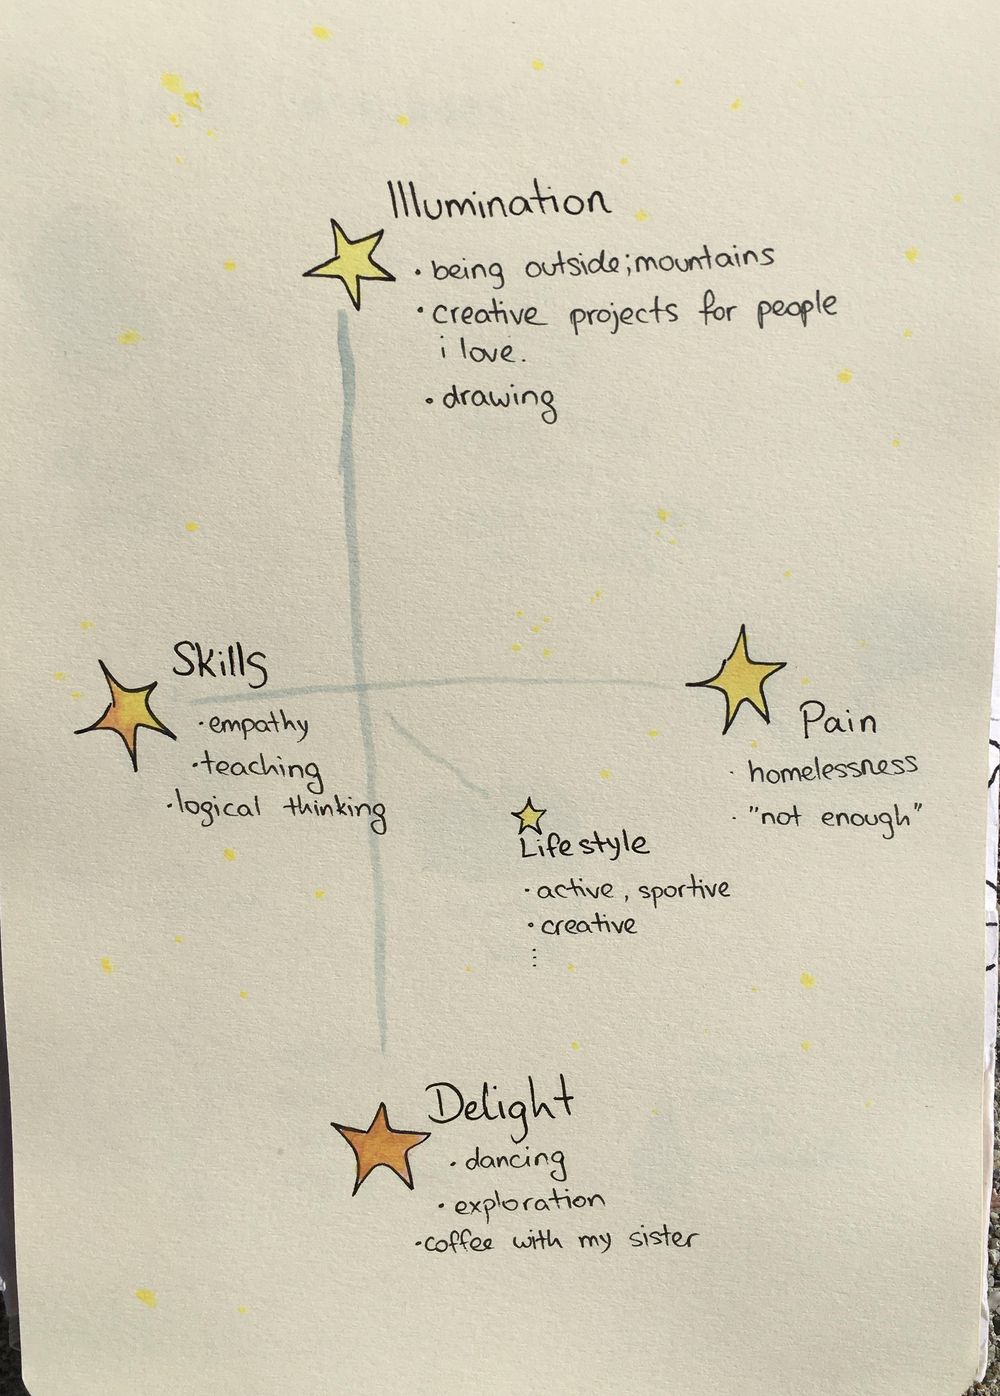 Illumination
· being outside; mountains
· creative projects for people
i love.
· drawing
Skills
· empathy
· teaching
· logical thinking
Pain
· homelessness
· "not enough"
Lifestyle
· active, sportive
· creative
⋮
Delight
· dancing
· exploration
· coffee with my sister